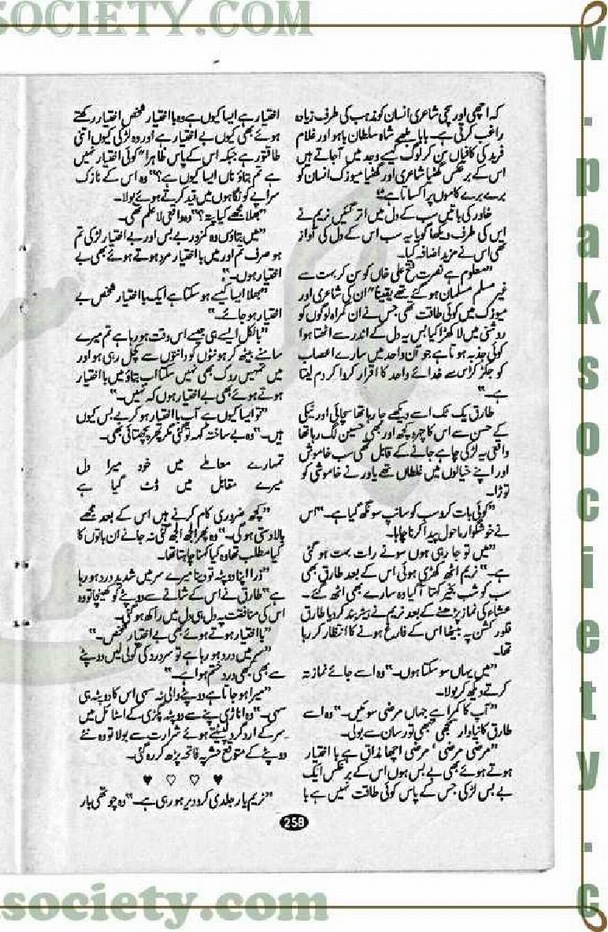 SOCIETY.COM
کہ اچھی اور سچی شاعری انسان کو مذہب کی طرف زیادہ
راغب کرتی ہے۔ بابا بلھے شاہ سلطان باہو اور غلام
فرید کی کافیاں سن کر لوگ کیسے وجد میں آجاتے ہیں
اس کے برعکس گھٹیا شاعری اور گھٹیا میوزک انسان کو
برے برے کاموں پر اکساتا ہے۔"
خاور کی باتیں سب کے دل میں اتر گئیں نریم نے
اس کی طرف دیکھا گویا یہ سب اس کے دل کی آواز
تھی اس نے مزید اضافہ کیا۔
"معلوم ہے نصرت فتح علی خاں کو سن کر بہت سے
غیر مسلم مسلمان ہو گئے تھے یقیناً" ان کی شاعری اور
میوزک میں کوئی طاقت تھی جس نے ان گمراہ لوگوں کو
روشنی میں لا کھڑا کیا بس یہ دل کے اندر سے اٹھتا ہوا
کوئی جذبہ ہوتا ہے جو آن واحد میں سارے اعصاب
کو جکڑ کر اس سے خدائے واحد کا اقرار کروا کر دم لیتا
ہے۔"
طارق یک ٹک اسے دیکھے جا رہا تھا سچائی اور نیکی
کے حسن سے اس کا چہرہ کچھ اور بھی حسین لگ رہا تھا
واقعی یہ لڑکی چاہے جانے کے قابل تھی سب خاموش
اور اپنے خیالوں میں غلطاں تھے یاور نے خاموشی کو
توڑا۔
"کوئی بات کرو سب کو سانپ سونگھ گیا ہے۔" اس
نے خوشگوار ماحول پیدا کرنا چاہا۔
"میں تو جا رہی ہوں سونے رات بہت ہو گئی
ہے۔" نریم اٹھ کھڑی ہوئی اس کے بعد طارق بھی
سب کو شب بخیر کہتا آ گیا وہ سارے بھی اٹھ گئے۔
عشاء کی نماز پڑھنے کے بعد نریم نے ہیٹر بند کر دیا طارق
فلور کشن پہ بیٹھا اس کے فارغ ہونے کا انتظار کر رہا
تھا۔
"میں یہاں سو سکتا ہوں۔" وہ اسے جائے نماز تہ
کرتے دیکھ کر بولا۔
"آپ کا کمرا ہے جہاں مرضی سوئیں۔" وہ اسے
طارق کا نیا وار سمجھی تبھی تو رسان سے بولی۔
"مرضی مرضی' مرضی اچھا مذاق ہے با اختیار
ہوتے ہوئے بھی بے بس ہوں اس کے برعکس ایک
بے بس لڑکی جس کے پاس کوئی طاقت نہیں ہے با
اختیار ہے ایسا کیوں ہے وہ با اختیار شخص اختیار رکھتے
ہوئے بھی کیوں بے اختیار ہے اور وہ لڑکی کیوں اتنی
طاقتور ہے جبکہ اس کے پاس ظاہراً" کوئی اختیار نہیں
ہے تم بتاؤ ناں ایسا کیوں ہے؟" وہ اس کے نازک
سراپے کو نگاہوں میں قید کرتے ہوئے بولا۔
"بھلا مجھے کیا پتہ؟" وہ واقعی لاعلم تھی۔
"میں بتاؤں وہ کمزور بے بس اور بے اختیار لڑکی تم
ہو صرف تم اور میں با اختیار مرد ہوتے ہوئے بھی بے
اختیار ہوں۔"
"بھلا ایسا کیسے ہو سکتا ہے ایک با اختیار شخص بے
اختیار ہو جائے۔"
"بالکل ایسے ہی جیسے اس وقت ہو رہا ہے تم میرے
سامنے بیٹھ کر ہونٹوں کو دانتوں سے کچل رہی ہو اور
میں تمہیں روک بھی نہیں سکتا اب بتاؤ میں با اختیار
ہوتے ہوئے بھی بے اختیار ہوں کہ نہیں۔"
"تو ایسا کیوں ہے آپ با اختیار ہو کر بے بس کیوں
ہیں۔" وہ بے ساختہ کہہ تو گئی مگر پھر پچھتائی بھی۔
تمہارے معاملے میں خود میرا دل
میرے مقابل میں ڈٹ گیا ہے
"کچھ ضروری کام کرنے ہیں اس کے بعد مجھے
بالادستی ہو گی۔" وہ پھر الجھ الجھ گئی نہ جانے ان باتوں کا
کیا مطلب تھا وہ کیا کہنا چاہتا تھا۔
"ذرا اپنا دوپٹہ تو دینا میرے سر میں شدید درد ہو رہا
ہے" طارق نے اس کے شانے سے دوپٹے کو کھینچا تو وہ
اس کی منافقت پہ دل ہی دل میں راکھ ہو گئی۔
"با اختیار ہوتے ہوئے بھی بے اختیار شخص۔"
"سر میں درد ہو رہا ہے تو سر درد کی گولی لیں دوپٹے
سے بھی کبھی درد ختم ہوا ہے۔"
"میرا ہو جاتا ہے دوپٹے والی نہ سہی اس کا دوپٹہ ہی
سہی۔" وہ اناڑی پنے سے دوپٹہ پگڑی کے اسٹائل میں
سر کے ارد گرد لپیٹتے ہوئے شرارت سے بولا تو وہ نئے
دوپٹے کے متوقع حشر پہ فاتحہ پڑھ کر رہ گئی۔
♥ ♡ ♡ ♥
"نریم یار جلدی کرو دیر ہو رہی ہے۔" وہ چوتھی بار
258
w.paksociety.c
society.com